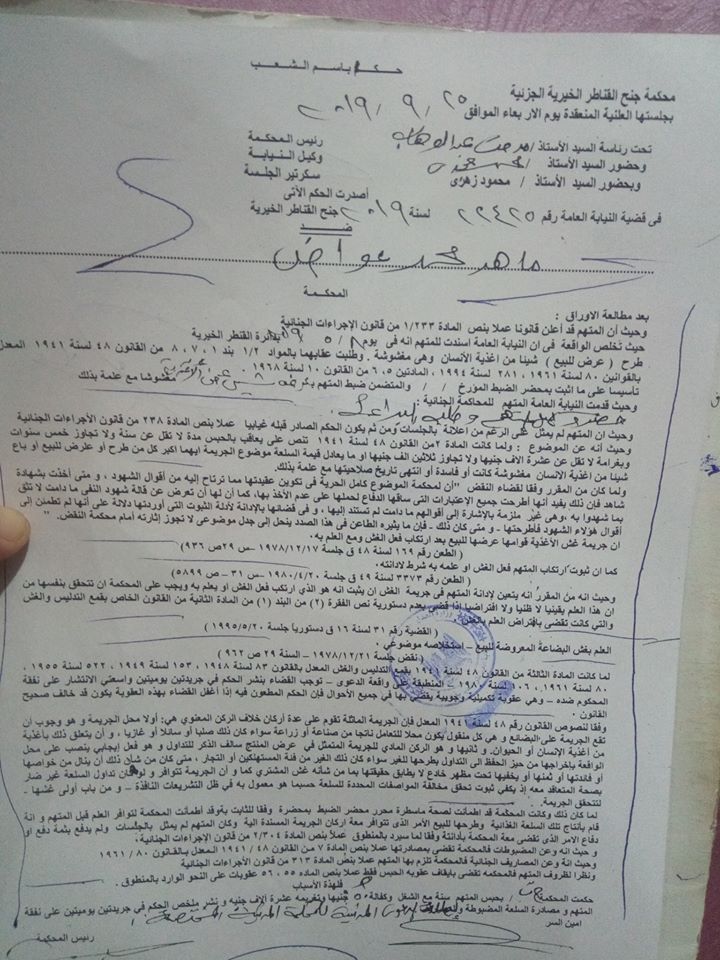 حكم باسم الشعب
محكمة جنح القناطر الخيرية الجزئية
بجلستها العلنية المنعقدة يوم الاربعاء الموافق ٢٥ / ٩ / ٢٠١٩
تحت رئاسة السيد الأستاذ / عبد الوهاب رئيس المحكمة
وحضور السيد الأستاذ / وكيل النيابة
وبحضور السيد الأستاذ / محمود زهرى سكرتير الجلسة
أصدرت الحكم الأتى
فى قضية النيابة العامة رقم ٢٢٤٢٥ لسنة ٢٠١٩ جنح القناطر الخيرية
ضد
ماهر محمد عواض
المحكمة
بعد مطالعة الاوراق :
وحيث أن المتهم قد أعلن قانونا عملا بنص المادة ١/٢٣٣ من قانون الإجراءات الجنائية
حيث تخلص الواقعة فى ان النيابة العامة اسندت للمتهم انه فى يوم بدائرة القنطر الخيرية
طرح ( عرض للبيع ) شيئا من اغذية الأنسان وهى مغشوشة . وطلبت عقابهما بالمواد ١/٢ بند ١ ، ٧ ، ٨ من القانون ٤٨ لسنة ١٩٤١ المعدل
بالقوانين ٨٠ لسنة ١٩٦١ ، ٢٨١ لسنة ١٩٩٤ ، المادتين ٥ ، ٦ من القانون ١٠ لسنة ١٩٦٨ .
تأسيسا على ما اثبت بمحضر الضبط المؤرخ / / والمتضمن ضبط المتهم مغشوشا مع علمة بذلك
وحيث قدمت النيابة العامة المتهم للمحاكمة الجنائية :
وحيث ان المتهم لم يمثل على الرغم من اعلانة بالجلسات ومن ثم يكون الحكم الصادر قبله غيابيا عملا بنص المادة ٢٣٨ من قانون الأجراءات الجنائية
وحيث أنه عن الموضوع : ولما كانت المادة ٢من القانون ٤٨ لسنة ١٩٤١ تنص على يعاقب بالحبس مدة لا تقل عن سنة ولا تجاوز خمس سنوات
وبغرامة لا تقل عن عشرة الاف جنيها ولا تجاوز ثلاثين الف جنيها او ما يعادل قيمة السلعة موضوع الجريمة ايهما اكبر كل من طرح أو عرض للبيع او باع
شيئا من اغذية الأنسان مغشوشة كانت أو فاسدة أو انتهى تاريخ صلاحيتها مع علمة بذلك.
ولما كان من المقرر وفقا لقضاء النقض "أن لمحكمة الموضوع كامل الحرية فى تكوين عقيدتها مما ترتاح إليه من أقوال الشهود ، و متى أخذت بشهادة
شاهد فإن ذلك يفيد أنها أطرحت جميع الإعتبارات التى ساقها الدفاع لحملها على عدم الأخذ بها، كما أن لها أن تعرض عن قالة شهود النفى ما دامت لا تثق
بما شهدوا به ،وهى غير ملزمة بالإشارة إلى أقوالهم ما دامت لم تستند إليها ، و فى قضائها بالإدانة لأدلة الثبوت التى أوردتها دلالة على أنها لم تطمئن إلى
أقوال هؤلاء الشهود فأطرحتها - و متى كان ذلك - فإن ما يثيره الطاعن فى هذا الصدد ينحل إلى جدل موضوعى لا تجوز إثارته أمام محكمة النقض. "
ان جريمة غش الأغذية قوامها عرضها للبيع بعد ارتكاب فعل الغش ومع العلم به.
( الطعن رقم ١٦٩ لسنة ٤٨ ق جلسة ١٩٧٨/١٢/١٧ –س ٢٩ص ٩٣٦ )
كما ان ثبوت ارتكاب المتهم فعل الغش او علمه به شرط لادانته.
( الطعن رقم ٣٣٧٣ لسنة ٤٩ ق جلسة ١٩٨٠/٤/٢٠ –س ٣١ – ص ٥٨٩٩ )
وحيث انه من المقرر انه يتعين لإدانة المتهم فى جريمة الغش ان يثبت انه هو الذي ارتكب فعل الغش أو يعلم به ويجب على المحكمة ان تتحقق بنفسها من
ان هذا العلم يقينيا ولا ظنيا ولا افتراضيا اذا قضي بعدم دستورية نص الفقرة (٢) من البند (١) من المادة الثانية من القانون الخاص بقمع التدليس والغش
والتي كانت تقضى بافتراض العلم بالغش.
( القضية رقم ٣١ لسنة ١٦ ق دستوريا جلسة ١٩٩٥/٥/٢٠ )
العلم بغش البضاعة المعروضة للبيع – استخلاصه موضوعي .
( نقض جلسة ١٩٧٨/١٢/٢١ لسنة ٢٩ ص ٩٦٢ )
لما كانت المادة الثالثة من القانون ٤٨ لسنة ١٩٤١ بقمع التدليس والغش المعدل بالقانون ٨٣ لسنة ١٩٤٨ ، ١٥٣ لسنة ١٩٤٩ ، ٥٢٢ لسنة ١٩٥٥ ،
٨٠ لسنة ١٩٦١ ، ١٠٦ لسنة ١٩٨٠ – المنطبقة على واقعة الدعوى – توجب القضاء بنشر الحكم في جريدتين يوميتين واسعتي الانتشار على نفقة
المحكوم ضده – وهي عقوبة تكميلية وجوبية يقضي بها في جميع الأحوال فإن الحكم المطعون فيه إذا أغفل القضاء بهذه العقوبة يكون قد خالف صحيح
القانون .
وفقا لنصوص القانون رقم ٤٨ لسنة ١٩٤١ المعدل فإن الجريمة الماثلة تقوم على عدة أركان خلاف الركن المعنوي هي: أولا محل الجريمة و هو وجوب أن
تقع الجريمة على البضائع و هى كل منقول يكون محلا للتعامل ناتجا من صناعة أو زراعة سواء كان ذلك صلبا أو سائلا أو غازيا ، و أن يتعلق ذلك بأغذية
من أغذية الانسان أو الحيوان. و ثانيها و هو الركن المادي للجريمة المتمثل في عرض المنتج سالف الذكر للتداول و هو فعل إيجابي ينصب على محل
الواقعة بإخراجها من حيز الحفظ الى التداول بطرحها للغير سواء كان ذلك الغير من فئة المستهلكين أو التجار ، متى كان من شأن ذلك أن ينال من خواصها
أو فائدتها أو ثمنها أو يخفيها تحت مظهر خادع لا يطابق حقيقتها بما من شأنه غش المشتري كما و أن الجريمة تتوافر و لو كان تداول السلعة غير ضار
بصحة المتعاقد معه إذ يكفي ثبوت تحقق مخالفة المواصفات المحددة للسلعة حسبما هو معمول به في ظل التشريعات النافذة – و من باب أولى غشها -
لتتحقق الجريمة.
لما كان ذلك وكانت المحكمة قد اطمأنت لصحة ماسطرة محرر محضر الضبط بمحضرة وفقا للثابت بة وقد اطمأنت المحكمة لتوافر العلم قبل المتهم و انة
قام بأنتاج تلك السلعة الغذائية وطرحها للبيع الأمر الذى تتوافر معة اركان الجريمة المسندة الية وكان المتهم لم يمثل بالجلسات ولم يدفع بثمة دفع او
دفاع الأمر الذى تقضى معة المحكمة بأدانتة وفقا لما سيرد بالمنطوق عملا بنص المادة ٢/٣٠٤ من قانون الإجراءات الجنائية.
و حيث انه عن المضبوطات فالمحكمة تقضى بمصادرتها عملا بنص المادة ٧ من القانون ٤٨ / ١٩٤١ المعدل بالقانون ٨٠ / ١٩٦١
وحيث انة وعن المصاريف الجنائية فالمحكمة تلزم بها المتهم عملا بنص المادة ٣١٣ من قانون الأجراءات الجنائية
ونظرا لظروف المتهم فالمحكمة تقضى بايقاف عقوبة الحبس فقط عملا بنص المادة ٥٥ ، ٥٦ عقوبات على النحو الوارد بالمنطوق.
فلهذة الأسباب
حكمت المحكمة / بحبس المتهم سنة مع الشغل وكفالة جنيها وتغريمه عشرة الاف جنيه و نشر ملخص الحكم في جريدتين يوميتين على نفقة
المتهم و مصادرة السلعة المضبوطة
امين السر رئيس المحكمة